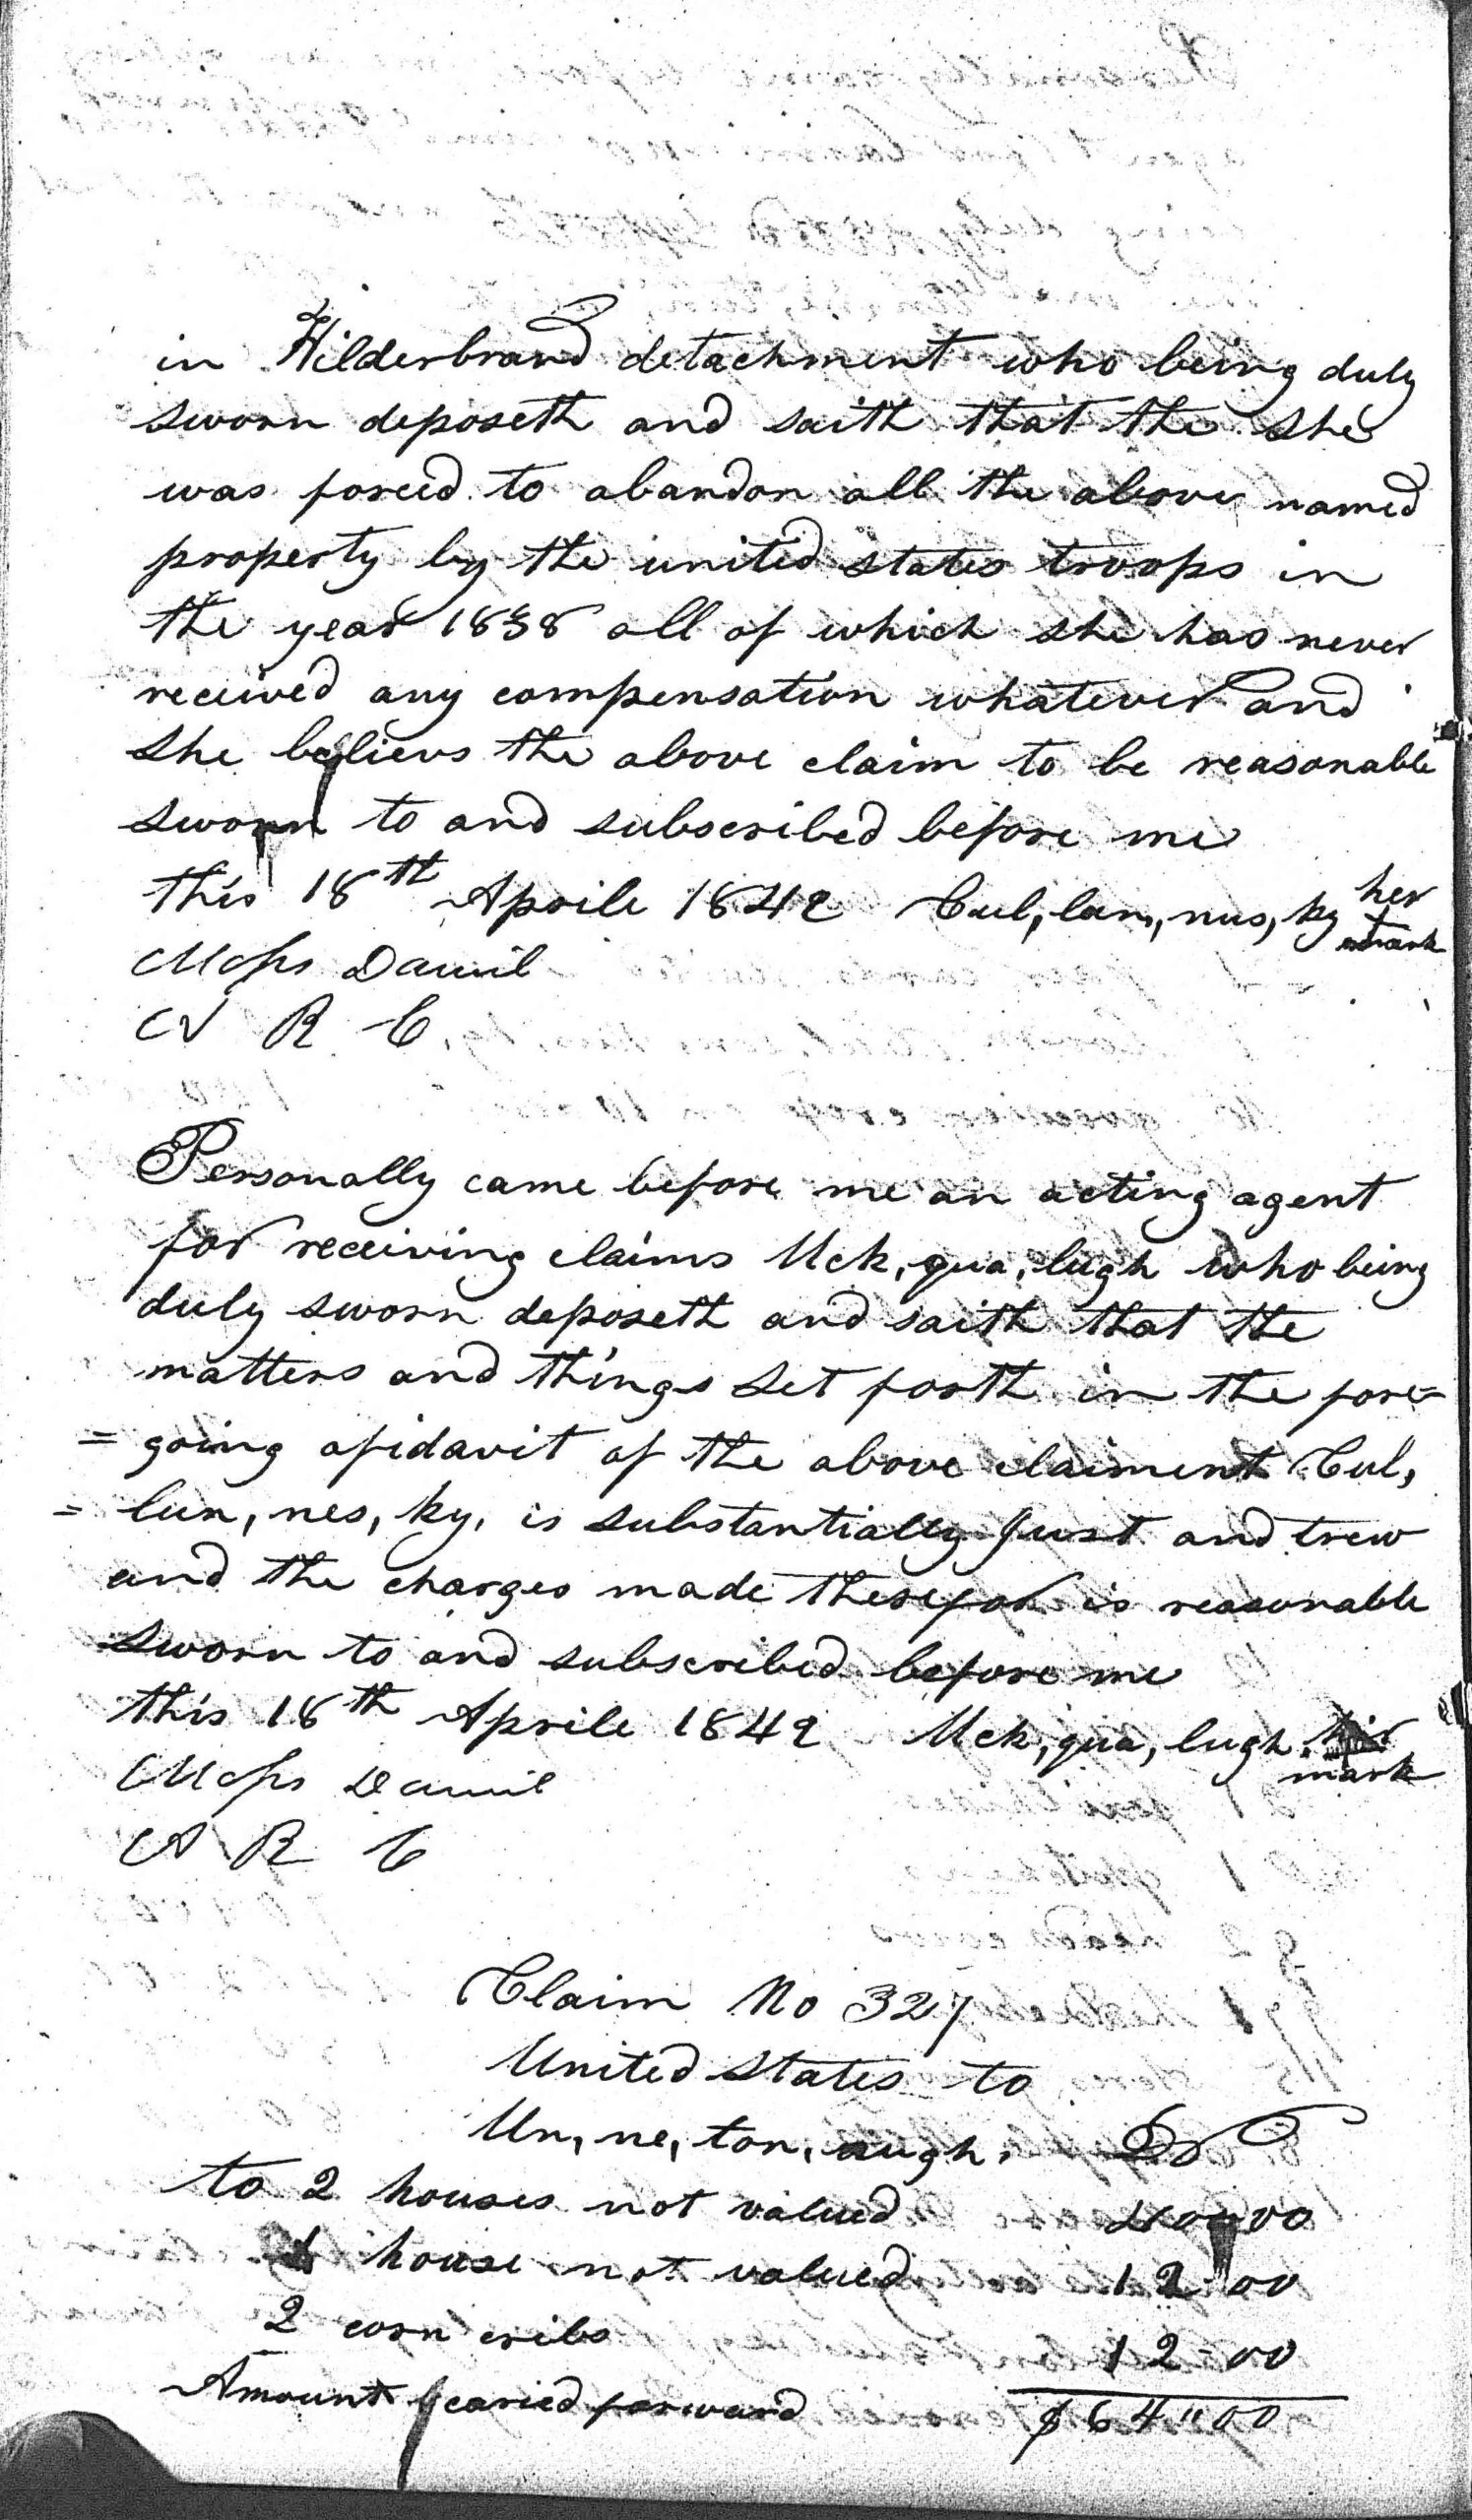 in Hilderbrand detachment who being duly
sworn deposeth and saith that the she
was forced to abandon all the above named
property by the united states troops in
the year 1838 all of which she has never
received any compensation whatever and
she believs the above claim to be reasonable
sworn to and subscribed before me
this 18th Aprile 1842 Cul, lun, nus, ky her
mark
Moses Daniel
A R C
Personally came before me an acting agent
for receiving claims Uck, qua, lugh who being
duly sworn deposeth and saith that the
matters and things set forth in the fore=
= going afidavit of the above claiment Cul,
= lun, nes, ky, is substantially just and trew
and the charges made therefor is reasonable
sworn to and subscribed before me
this 18th Aprile 1842 Uck, qua, lugh, his
mark
Moses Daniel
A R C
Claim No 327
United States to
Un, ne, ton, augh, Dr
to 2 houses not valued 40"00
1 house not valued 12-00
2 corn cribs 12-00
Amount caried forward $64"00